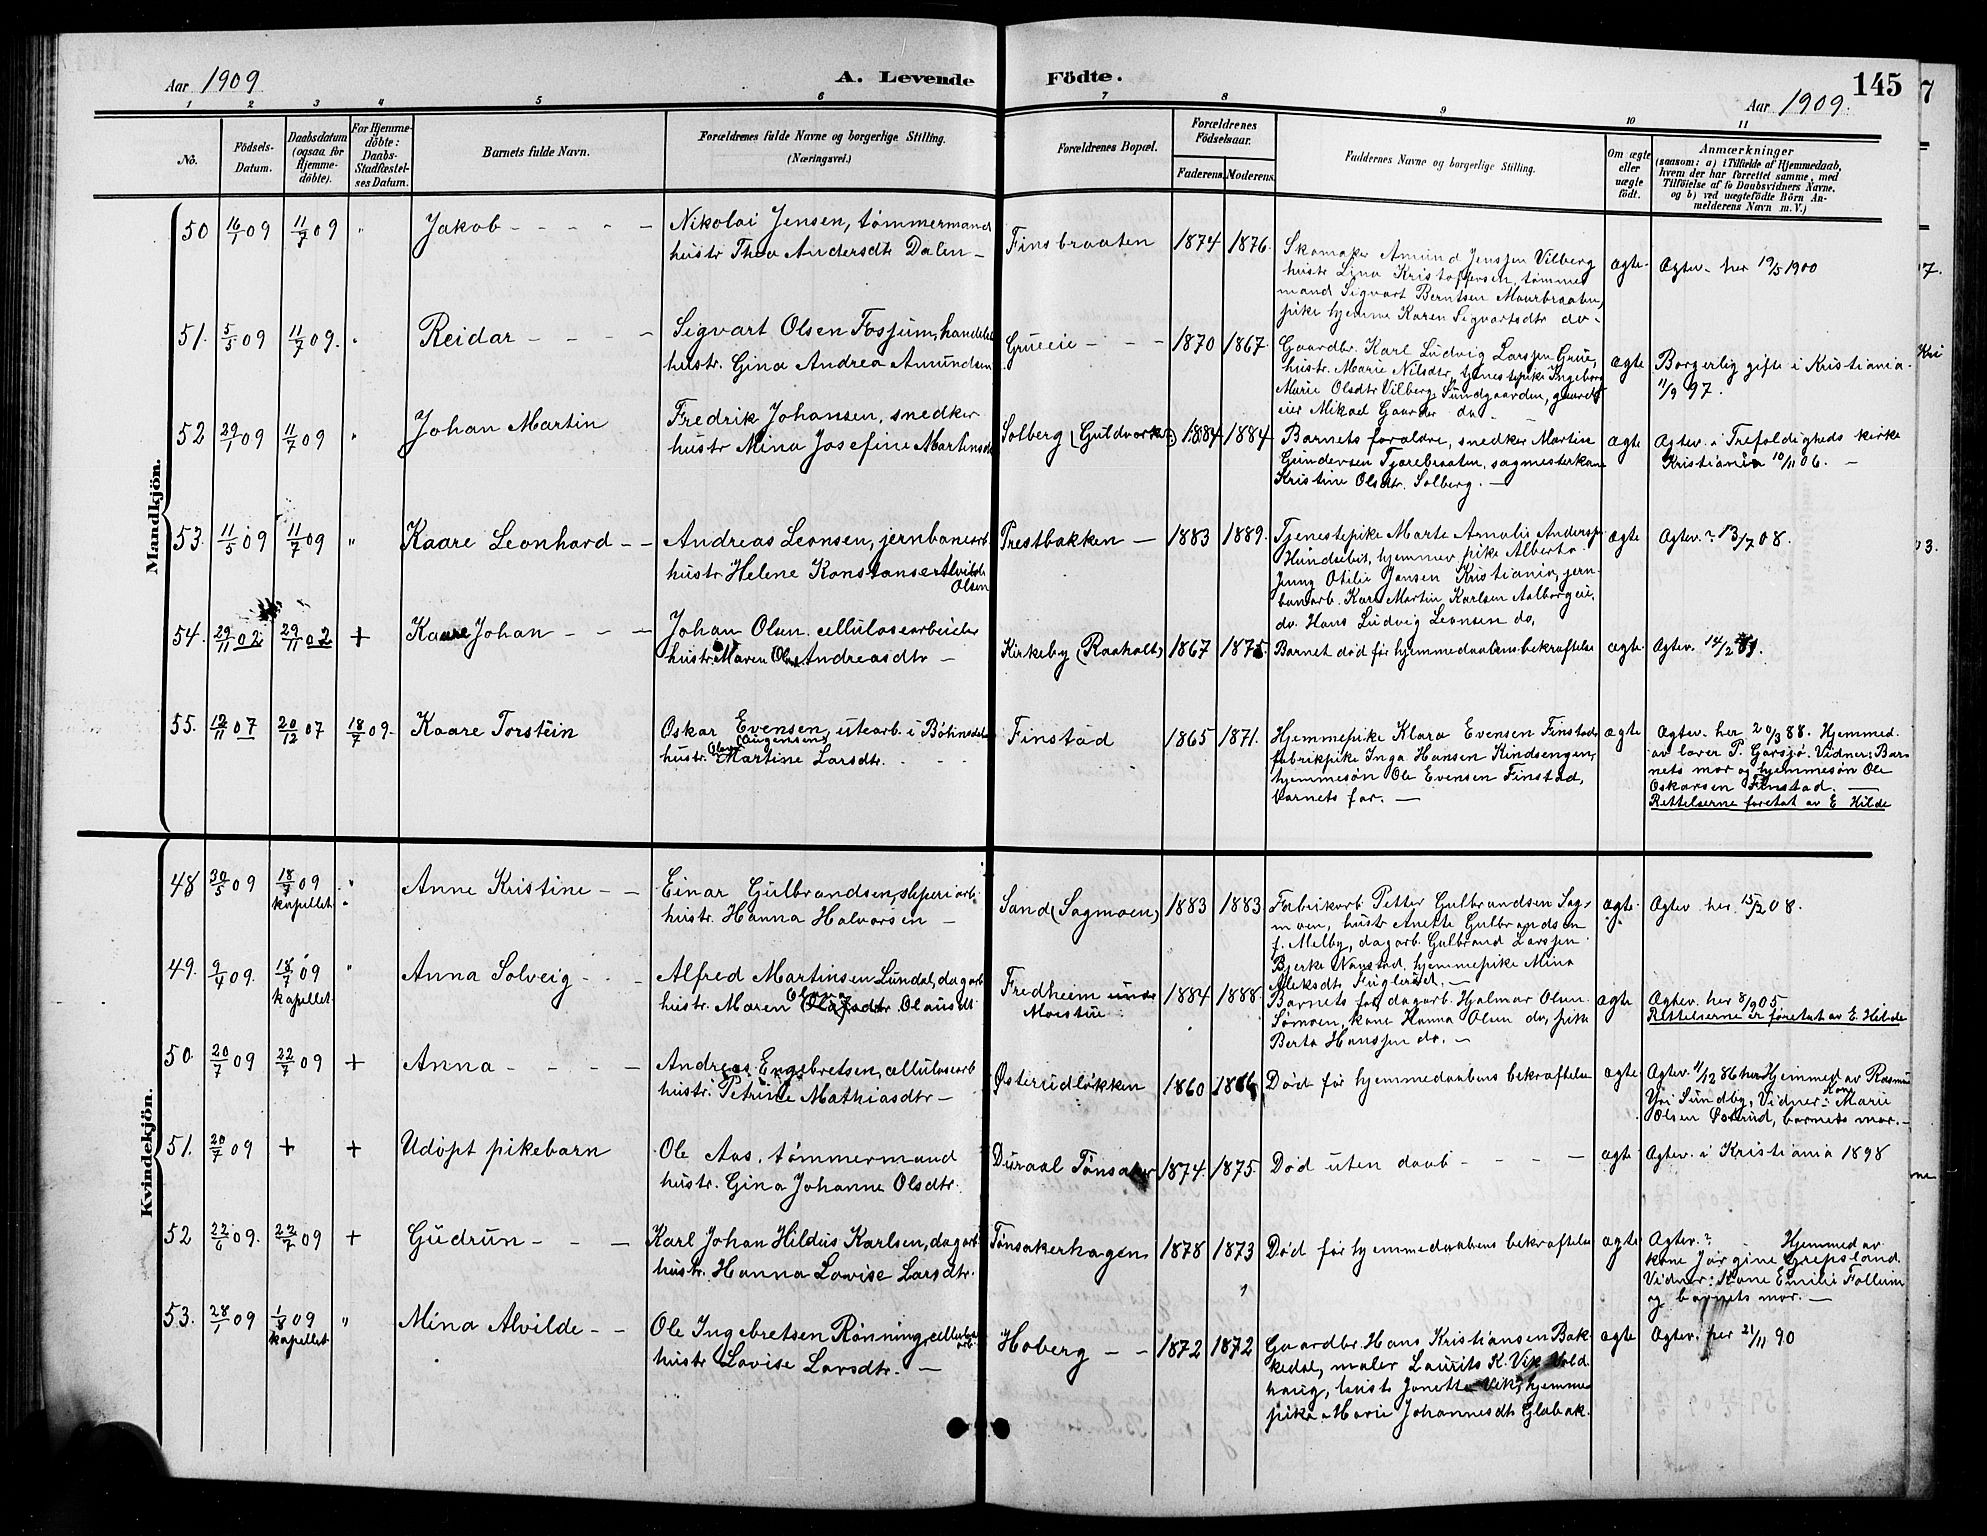 Aar 1909
A. Levende Födte.
145
Aar 1909.
1 2 3 4 5 6 7 8 9 10 11
No.
Födsels-
Datum.
Daabsdatum
(ogsaa for
Hjemme-
döbte).
For Hjemme-
döbte:
Daabs-
Stadfæstel-
ses Datum.
Barnets fulde Navn.
Forældrenes fulde Navne og borgerlige Stilling.
(Næringsvei.)
Forældrenes Bopæl.
Forældrenes
Födselsaar.
Faderens. Moderens.
Faddernes Navne og borgerlige Stilling.
Om ægte
eller
uægte
födt.
Anmærkninger
(saasom: a) i Tilfælde af Hjemmedaab,
hvem der har forrettet samme, med
Tilföielse af to Daabsvidners Navne.
og b) ved uægtefödte Börn An-
melderens Navn m. V.)
Mandkjön.
50 16/1 09 11/7 09 " Jakob - - - - -
Nikolai Jensen, tømmermand
hustr Thea Andersdtr Dalen -
Finsbraaten 1874 1876.
Skomaker Amund Jenssen Vilberg
hustr Lina Kristoffersen, tømmer
mand Sigvart Berntsen Maurbraaten,
pike hjemme Karen Sigvartsdtr do -
ægte. Ægtev. her 19/5 1900
51. 5/5 09 11/7 09. " Reidar - - - -
Sigvart Olsen Fosjum, handels
hustr. Gina Andrea Amundsen
Grueeie - - - 1870 1867.
Gaardbr. Karl Ludvig Larssen Grue,
hustr. Marie Nilsdtr, tjenestepike Ingeborg
Marie Olsdtr Vilberg, Sundgaarden, gaard
eier Mikael Gaarder do -
ægte Borgerlig gifte i Kristiania
11/9 97.
52 29/1 09 11/7 09 " Johan Martin
Fredrik Johansen, snedker
hustr Mina Josefine Martinsd
Solberg (Guldverket) 1884 1884
Barnets forældre, snedker Martin
Gundersen Tjærebraaten, sagmesterkone
Kristine Olsdtr. Solberg. -
ægte Ægtev. i Trefoldigheds kirke
Kristiania 10/11 06. -
53. 11/5 09 11/7 09 " Kaare Leonhard - -
Andreas Leonsen, jernbanearb
hustr Helene Konstanse Alvilde
Olsen
Prestbakken - 1883 1889.
Tjenestepike Marte Amalie Anderssen
Hundeebit, hjemmev pike Alberta
Jenny Otilie Jansen Kristiania, jern-
banearb. Karl Martin Karlsen Aalborgeie,
do. Hans Ludvig Leonsen do,
ægte Ægtev. ? 13/7 08.
54. 29/11 02 29/11 02 + Kaare Johan - - -
Johan Olsen. cellulosearbeider
hustr. Maren Andreasdtr -
Kirkeby (Raaholt) 1867 1875
Barnet død før hjemmedaabens bekræftelse
ægte. Ægtev. 14/2
55. 12/11 07 20/12 07 18/7 09. Kaare Torstein
Oskar Evensen, utearb. i Bøhnsdal
(Augensen)
hustr. Martine Larsdtr. - - -
Finstad 1865 1871.
Hjemmepike Klara Evensen Finstad,
fabrikpike Inga Hansen Kindsengen,
hjemmesøn Ole Evensen Finstad,
barnets far. -
ægte Ægtev. her 20/3 88. Hjemmed.
av lærer P. Garsjø. Vidner: Bar-
nets mor og hjemmesøn Ole
Oskarsen Finstad. -
Rettelserne foretat av E Hilde
Kvindekjön.
48 30/5 09 18/7 09 kapellet " Anne Kristine - -
Einar Gulbrandsen, sliperiarb.
hustr. Hanna Halvorsen -
Sand (Sagmoen) 1883 1883
Fabrikarb Petter Gulbrandsen Sag-
moen, hustr Anette Gulbrandsen
f. Melby, dagarb. Gulbrand Larssen
Bjerke Nanstad, hjemmepike Mina
Aleksdtr Fugleredet. -
ægte. Ægtev her. 15/2 08.
49. 9/4 09. 18/7 09 kapellet " Anna Solveig - -
Alfred Martinsen Lundel, dagarb
hustr. Maren Olausdtr
Fredheim
Moistue 1884 1888
Barnets far, dagarb. Hjalmar Olsen
Sømoen, kone Hanna Olsen do, pike
Berta Hanssen do. -
ægte Ægtev. her 8/9 05
Rettelserne er foretat av E. Hilde
50. 20/7 09 22/7 09 + Anna - - - -
Andreas Engebretsen, cellulosearb
hustr. Petrine Mathiasdtr -
Østerudløkken 1860 1866
Død før hjemmedaabens bekræftelse
ægte Ægtev. 11/12 86 her Hjemmed av Rasmus
Yri Sundby, Vidner: Kone Marie
Olsen Østerud, barnets mor. -
51. 20/7 09 + + Udøpt pikebarn
Ole Aas. tømmermand
hustr. Gina Johanne Olsdtr.
Duraal Tønsaker 1874. 1875.
Død uten daab - - - -
ægte Ægtev. i Kristiania 1898
52 22/6 09. 22/7 09 + Gudrun - - -
Karl Johan Hildus Karlsen, dagarb
hustr. Hanna Lovise Larsdtr.
Tønsakerhagen 1878 1873
Død før hjemmedaabens bekræftelse
ægte Ægtev. ? Hjemmed av
kone Jørgine Grepsland.
Vidner: Kone Emilie Folleim
og barnets mor. -
53. 28/1 09 1/8 09 kapellet " Mina Alvilde - -
Ole Ingebretsen Rønning, cellulose
arb.
hustr Lovise Larsdtr. -
Hoberg - - 1872 1872
Gaardbr. Hans Kristiansen Bak-
kedal, maler Laurits K. Vik Vold-
haug, hustr Janette Vik, hjemme-
pike Marie Johannesdtr Glæbak.
ægte Ægtev. her 21/11 90